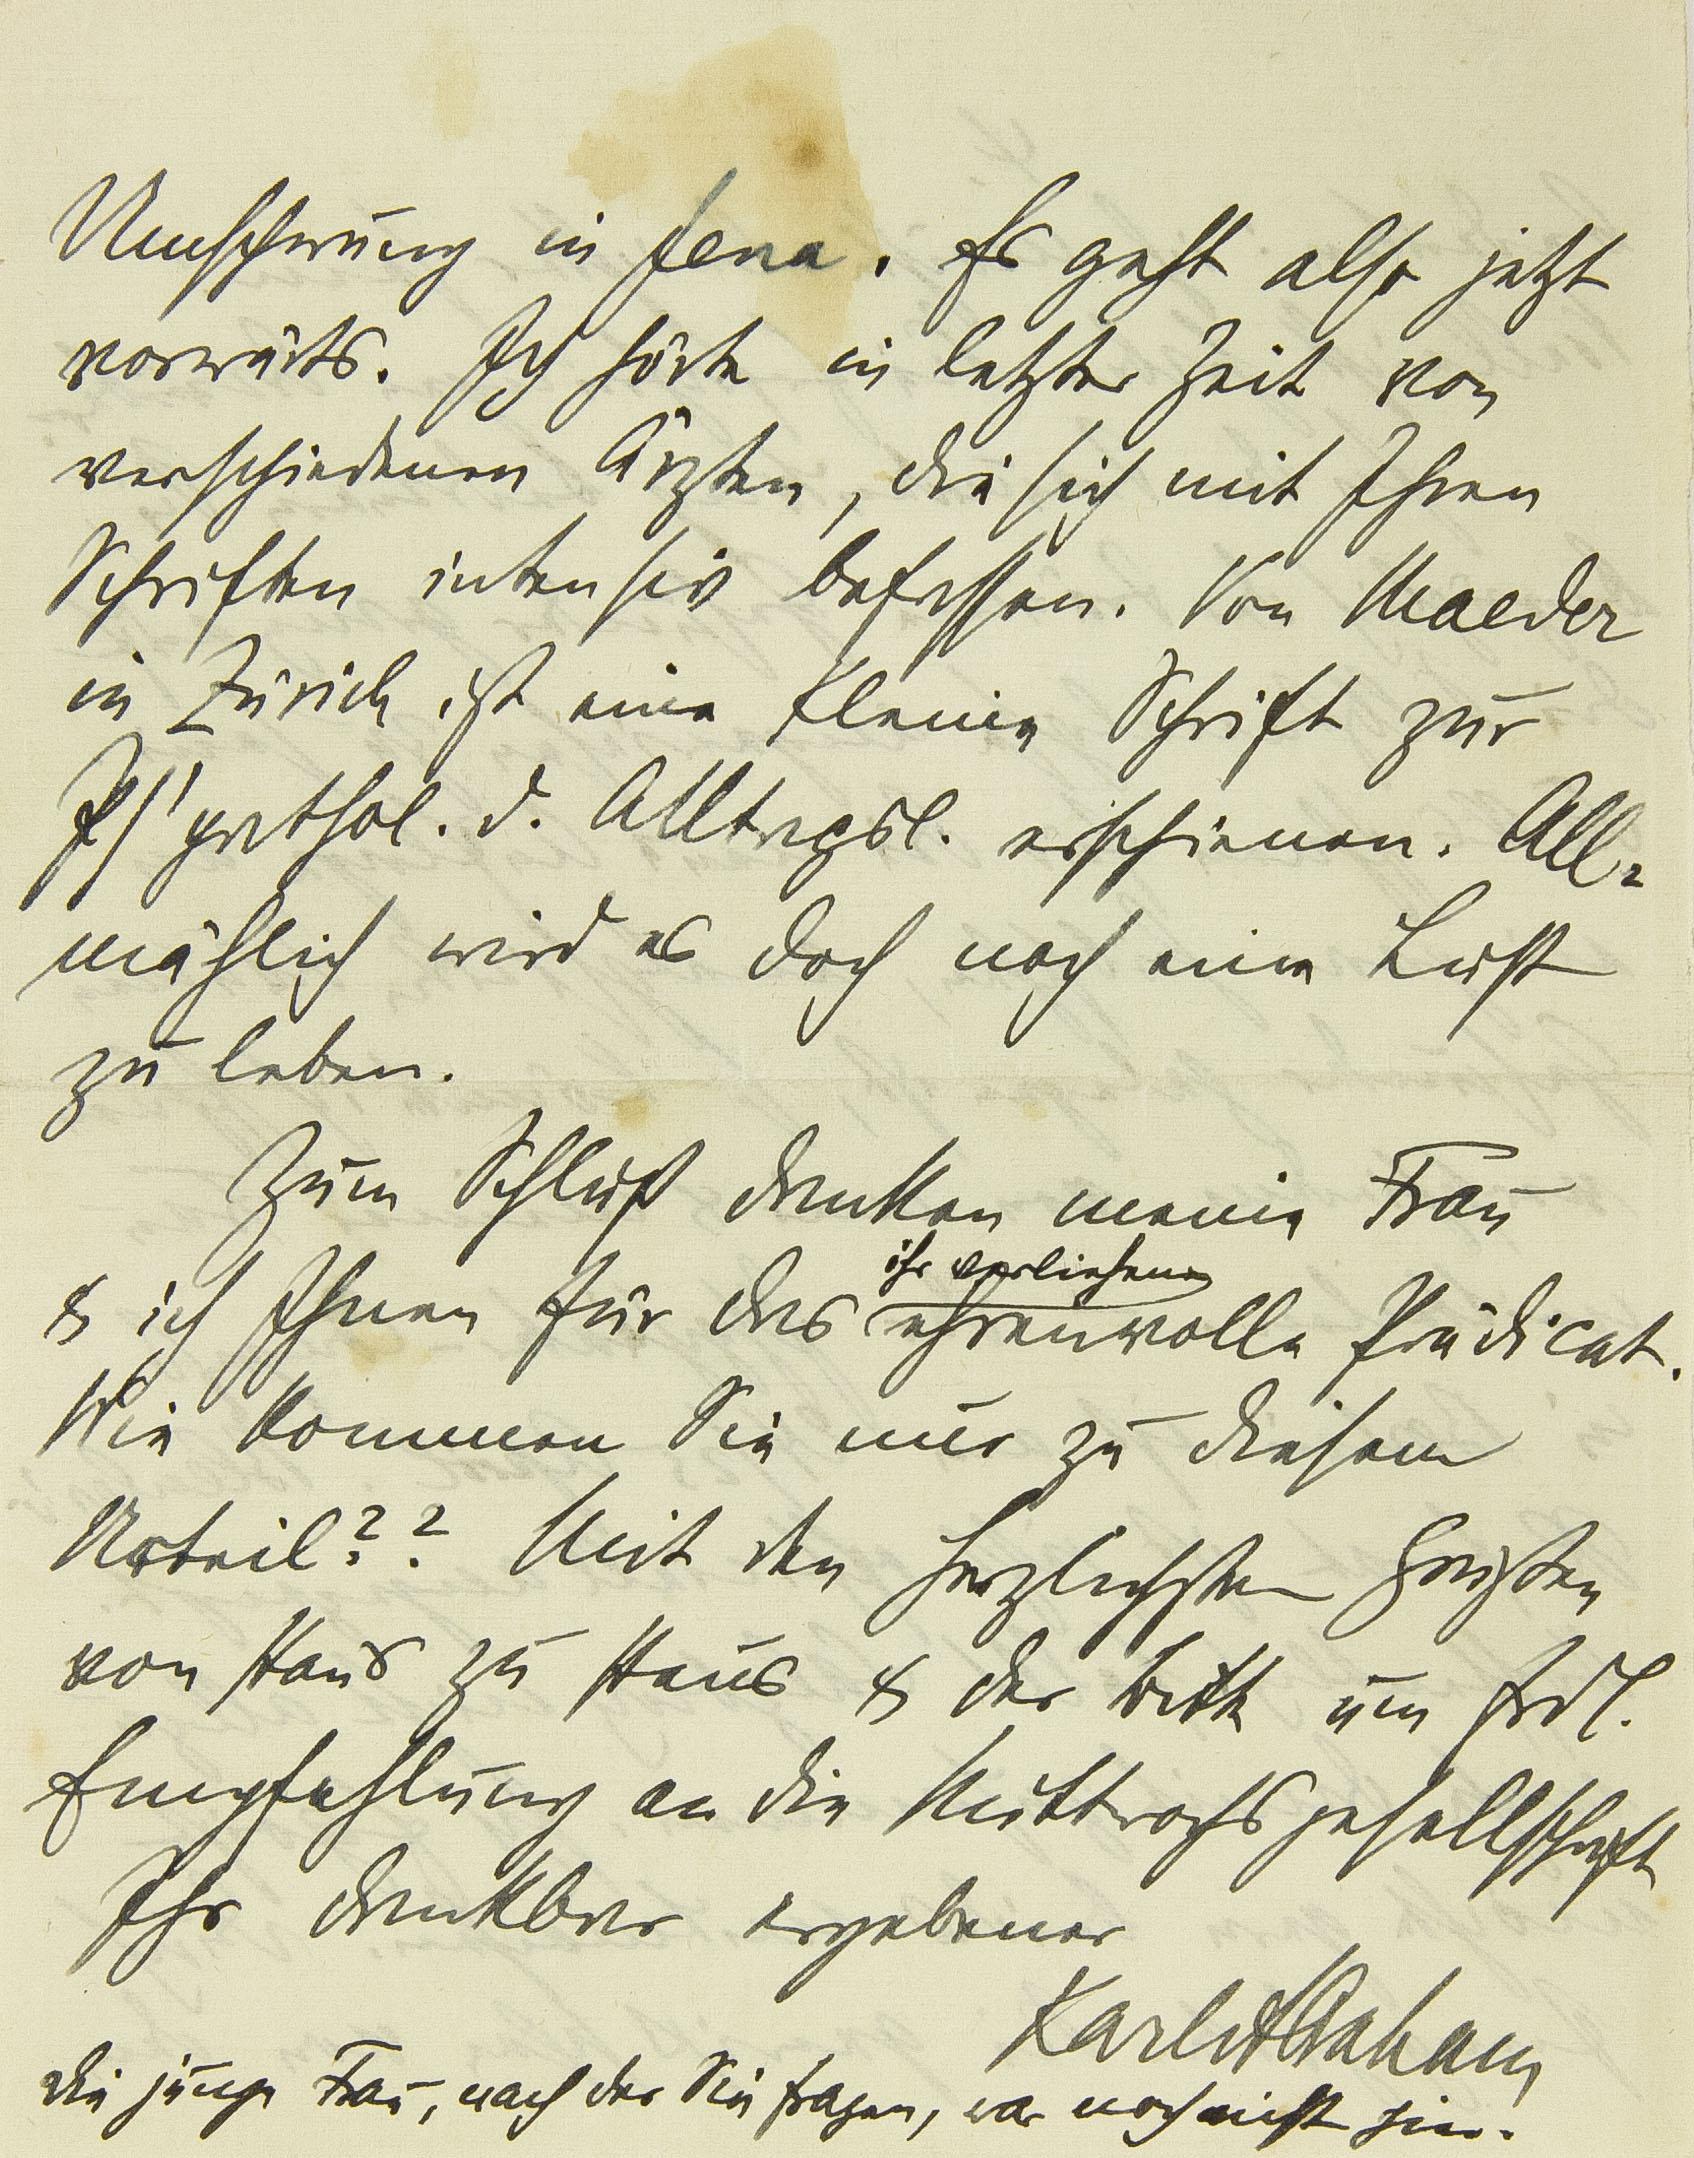 Umschwung in Jena. Es geht also jetzt
vorwärts. Ich hörte in letzter Zeit von
verschiedenen Ärzten, die sich mit Ihren
Schriften intensiv befassen. Von Maeder
in Zürich ist eine kleine Schrift zur
Ps'pathol. d. Alltagsl. erschienen. All-
mählich wird es doch noch eine Lust
zu leben.
Zum Schluß danken meine Frau
& ich Ihnen für das ihr verliehene ehrenvolle Prädicat.
Wie kommen Sie nur zu diesem
Urteil?? Mit den herzlichsten Grüßen
von Haus zu Haus & der Bitte um frdl.
Empfehlung an die Mittwochsgesellschaft
Ihr dankbar ergebener
Karl Abraham
Die junge Frau, nach der Sie fragen, war noch nicht hier.